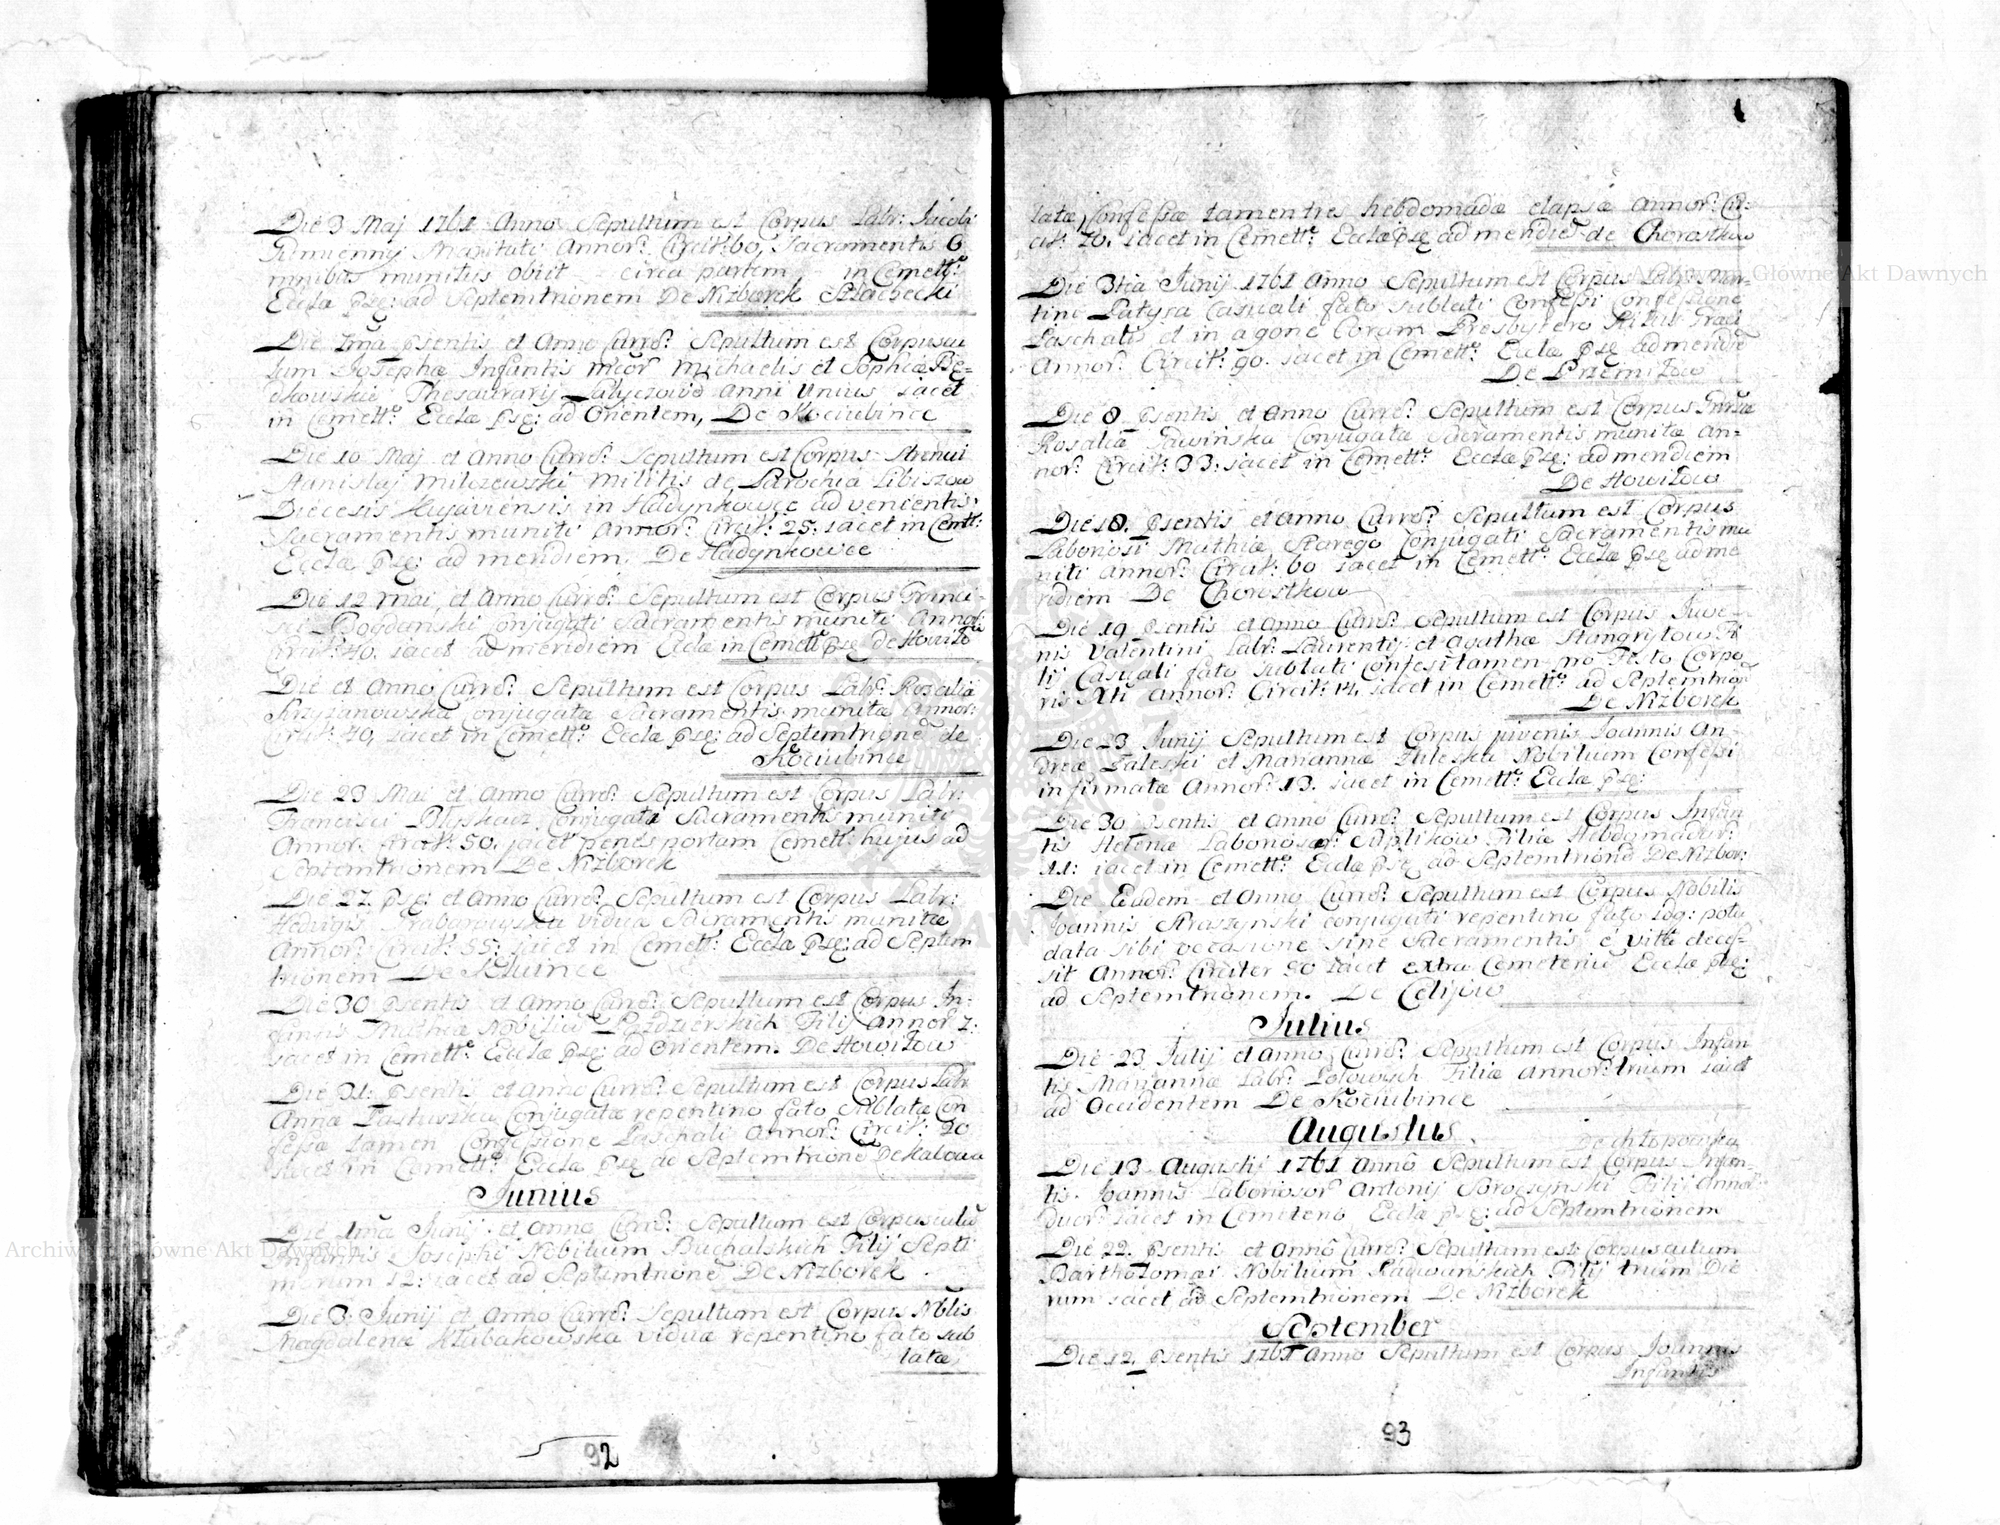 Die 3 Maj 1761 Anno Sepultum est Corpus Labr: Jacobi
Maritati Annor: Circit: 60, Sacramentis o
mnibus munitus obiit circa partem in Cemett:
Eccla pse: ad Septemtrionem De Niżborek Szlachecki
Die 7ma psentis et Anno Curre: Sepultum est Corpuscu
lum Josephæ Infantis Michaelis et Sophiæ Bę=
Thesaurarij Anni Unius jacet
in Cemett: Eccla pse: ad Orientem, De Kociubince
Die 10 Maj et Anno Curre: Sepultum est Corpus Strenui
Stanislaj Milczewski Militis de Parochia Libiszow
Diecesis Kujaviensis in Hadynkowce advenientis
Sacramentis muniti Annor: Circit: 25. jacet in Cemtt:
Eccla pse: ad meridiem. De Hadynkowce
Die 12 Mai et Anno Curre: Sepultum est Corpus Franci-
sci Bogdanski Conjugati Sacramentis muniti Annor:
Circit: 40. jacet ad meridiem Eccla in Cemett pse de Howiło
Die et Anno Curre: Sepultum est Corpus Labr: Rosalia
Krzyżanowska Conjugatæ Sacramentis munitæ Annor:
Circit: 40, jacet in Cemett: Eccla pse: ad Septemtrione de
Kociubince
Die 23 Mai et Anno Curre: Sepultum est Corpus Labr:
Francisci Conjugata Sacramentis muniti
Annor: Circit: 50. jacet penes portam Cemett: hujus ad
Septemtrionem De Niżborek
Die 27. pse: et Anno Curre: Sepultum est Corpus Labr:
Hedvigis viduæ Sacramentis munitæ
Annor: Circit: 55: jacet in Cemett: Eccla pse: ad Septem
trionem De
Die 30 psentis et Anno Curre: Sepultum est Corpus In-
fantis Mathiæ Nobiliu Filij Annor 7.
jacet in Cemett: Eccla pse: ad Orientem. De Howiłow
Die 31: psentis et Anno Curre: Sepultum est Corpus Labr
Annæ Conjugatæ repentino fato sublatæ Con
fessæ tamen Confessione Paschali Annor: Circit: 20
jacet in Cemett: Eccla pse ad Septemtrione De
Junius
Die 1ma Junij et Anno Curre: Sepultum est Corpusculu
Infantis Josephi Nobilium Buchalskich Filij Septi
manarum 12: jacet ad Septemtrione De Niżborek
Die 3 Junij et Anno Curre: Sepultum est Corpus Nblis
Magdalenæ viduæ repentino fato sub
latæ,
latæ, Confessæ tamen tres hebdomadæ elapsæ Annor: Cir:
cit: 70. jacet in Cemett: Eccla pse ad meridie de Chorostkow
Die 3tia Junij 1761 Anno Sepultum est Corpus Labr: Mar-
tini Łatysa Casuali fato sublati Confessi Confessione
Paschali et in agone Coram Presbytero Ritus Græci
Annor: Circit: 90. jacet in Cemett: Eccla pse ad meridie
De Przemiłow
Die 8 psentis et Anno Curre: Sepultum est Corpus
Rosaliæ Conjugatæ Sacramentis munitæ An=
nor: Circit: 33: jacet in Cemett: Eccla pse: ad meridiem
De Howiłow
Die 18. psentis et Anno Curre: Sepultum est Corpus
Laboriosi Mathiæ Starego Conjugati Sacramentis mu
niti Annor: Circit: 60 jacet in Cemett: Eccla pse ad me
ridiem De Chorostkow
Die 19 psentis et Anno Curre: Sepultum est Corpus Juve-
nis Valentini Labr: Laurentij et Agathæ Fi
lij Casuali fato sublati Confessi tamen pro Festo Corpo
ris Xti Annor: Circit: 14. jacet in Cemett: ad Septemtrio
De Niżborek
Die 23 Junij Sepultum est Corpus juvenis Joannis An-
dreæ Zaleski et Mariannæ Nobilium Confessi
infirmatæ Annor: 13. jacet in Cemett: Eccla pse:
Die 30 psentis et Anno Curre: Sepultum est Corpus Infan
tis Helenæ Laboriosor: Filiæ Hebdomadar:
11: jacet in Cemett: Eccla pse ad Septemtrione De Niżbor:
Die Eadem et Anno Curre: Sepultum est Corpus Nobilis
Joannis Straszynski conjugati repentino fato potu
data sibi occasione sine Sacramentis e vita deces-
sit Annor: Circiter 50 jacet extra Cemeteriu Eccla pse:
ad Septemtrionem. De Celijow
Julius
Die 23 Julij et Anno Curre: Sepultum est Corpus Infan
tis Mariannæ Labr: Filiæ Annor: trium jacet
ad Occidentem De Kociubince
Augustus
De chłopowska
Die 13 Augustij 1761 Anno Sepultum est Corpus Infan-
tis Joannis Laboriosor Antonij Filij Annor:
Duor: jacet in Cemeterio Eccla pse: ad Septemtrionem
Die 22. psentis et Anno Curre: Sepultum est Corpusculum
Bartholomæi Nobilium Filij trium Die
rum jacet ad Septemtrionem De Niżborek
September
Die 12. psentis 1761 Anno Sepultum est Corpus Joannis
Infantis
92
93
Archiwum Główne Akt Dawnych
Archiwum Główne Akt Dawnych